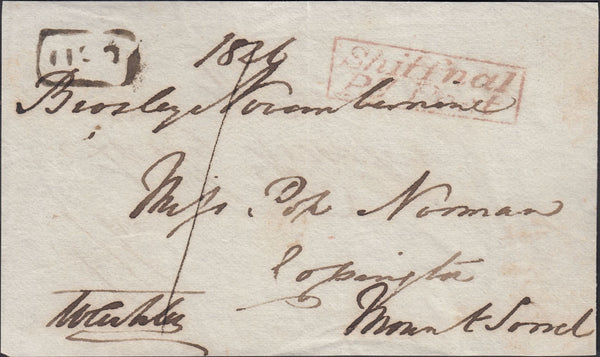 1826
Shiffnal
Py Post
Beosley November nine
Miss. Pox Norman
Cossington
Mount Sorrel